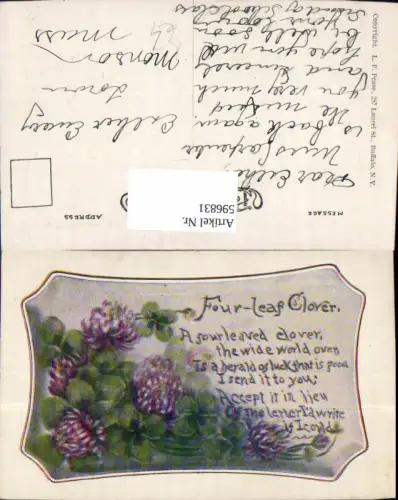 Copyright. L. F. Pease, 257 Laurel St., Buffalo, N.Y.
MESSAGE
ADDRESS
Dear
Miss Carpenter
is back again.
We missed
you very much
and sincerely
hope you will
be well soon
Town
Monson
Mass
Artikel Nr.
596831
Four-Leaf Clover.
A four leaved clover,
the wide world over,
Is a herald of luck that is good
I send it to you;
Accept it in lieu
Of the letter I'd write
if I could